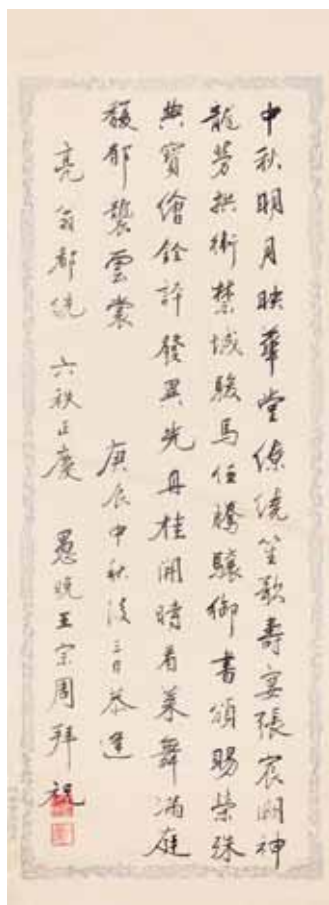 中秋明月映華堂繚繞笙歌壽宴張宸闕神
龍芳拱衛禁城駿馬任騰驤御書頒賜榮殊
典寶繪銓評發異光丹桂開時看萊舞滿庭
馥郁襲雲裳 庚辰中秋後三日恭
亮翁都統 六秩正慶 愚晚王宗周拜祝